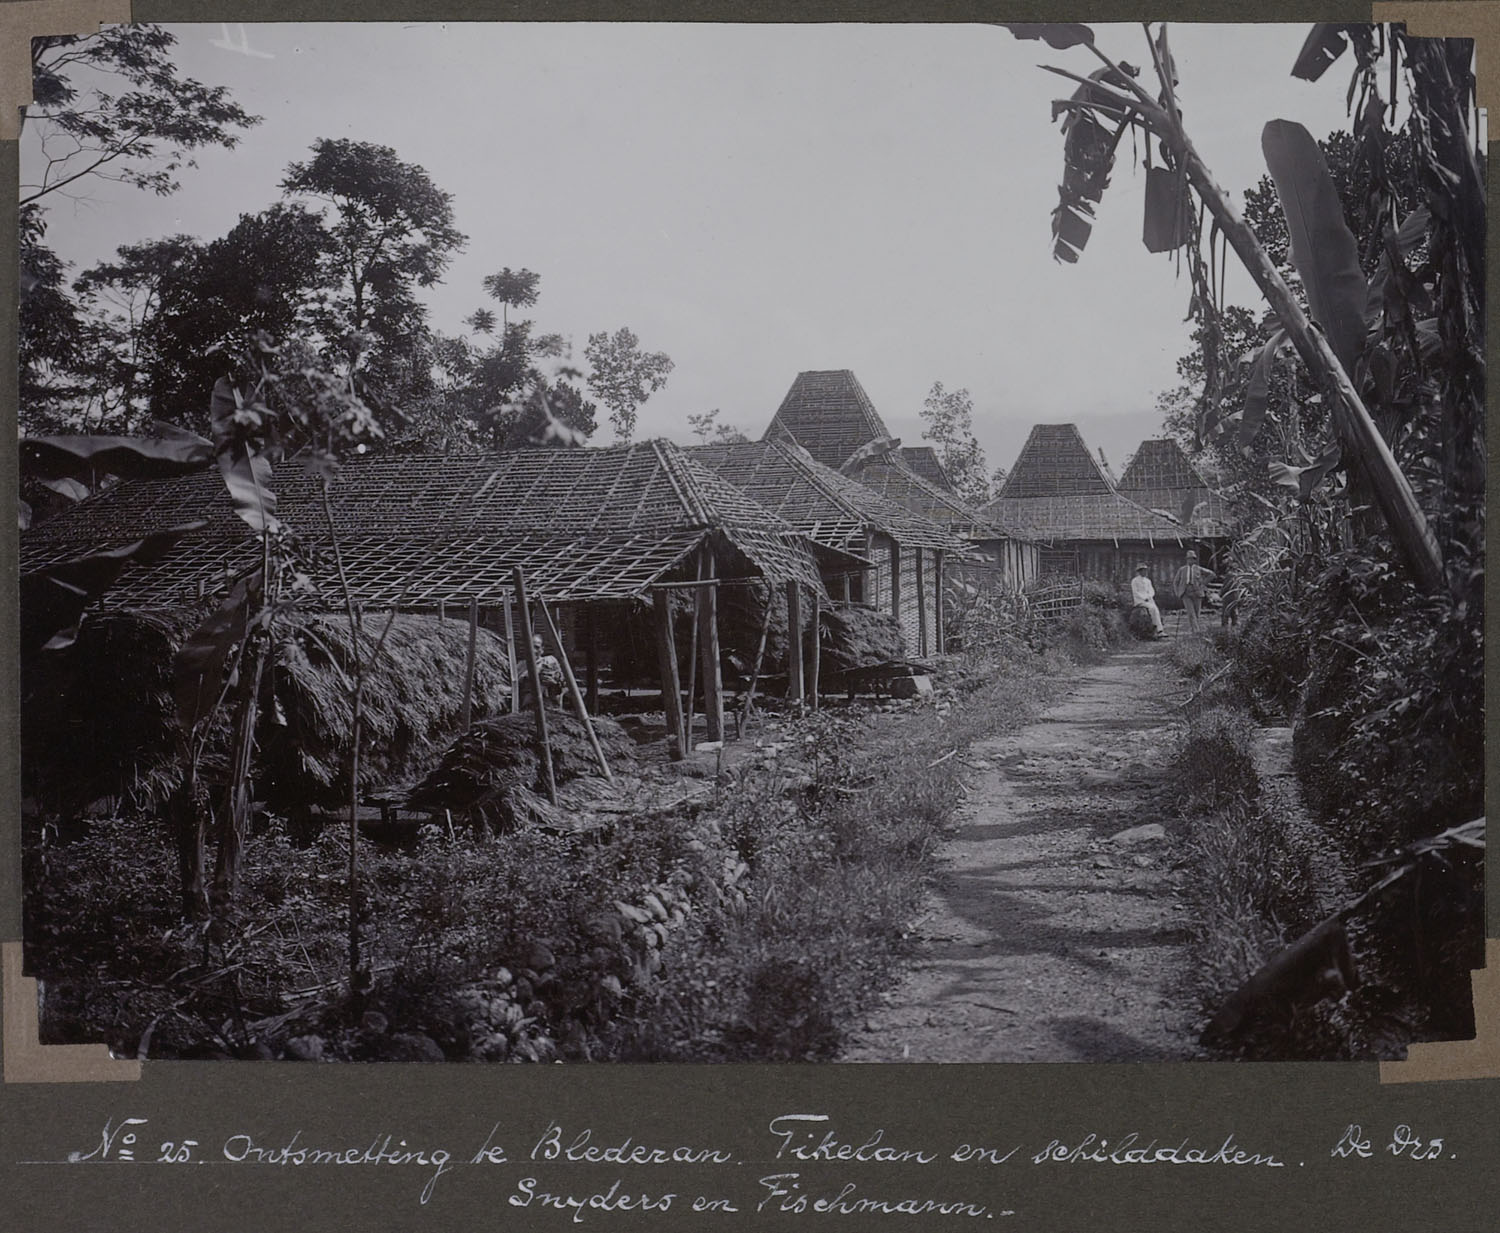 No 25. Ontsmetting te Blederan. Tikelan en schilddaken. De Drs.
Snyders en Fischmann.-